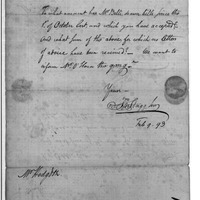 To what amount has Mr Dobb drawn bills since the
1st of October last, and which you have accepted?
And what sum of the above for which no letters
of advice have been received? We want to
inform Mr O'Hara this
Yours
Feb 9. 93
Mr Hodgson